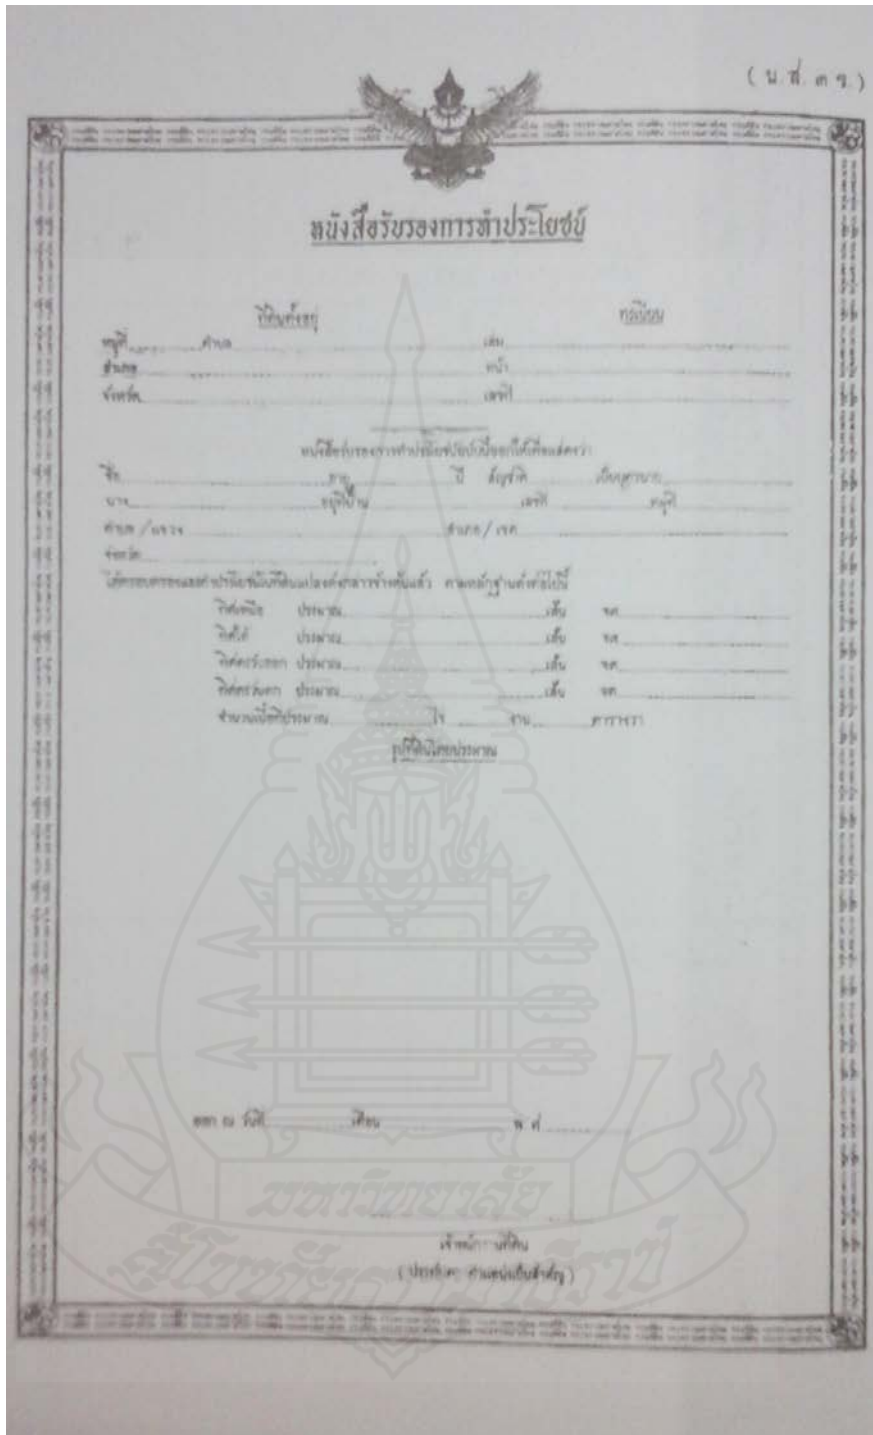 (น.ส. ๓ ข.)
หนังสือรับรองการทำประโยชน์
ที่ดินตั้งอยู่ ทะเบียน
หมู่ที่ ตำบล เล่ม
อำเภอ หน้า
จังหวัด เลขที่
หนังสือรับรองการทำประโยชน์ฉบับนี้ออกให้เพื่อแสดงว่า
ชื่อ อายุ ปี สัญชาติ เป็นบุตรนาย
นาง อยู่ที่บ้าน เลขที่ หมู่ที่
ตำบล/แขวง อำเภอ/เขต
จังหวัด
ได้ครอบครองและทำประโยชน์ในที่ดินแปลงดังกล่าวข้างต้นแล้ว ตามหลักฐานดังต่อไปนี้
ทิศเหนือ ประมาณ เส้น จด
ทิศใต้ ประมาณ เส้น จด
ทิศตะวันออก ประมาณ เส้น จด
ทิศตะวันตก ประมาณ เส้น จด
จำนวนเนื้อที่ประมาณ ไร่ งาน ตารางวา
รูปที่ดินโดยประมาณ
ออก ณ วันที่ เดือน พ.ศ.
เจ้าพนักงานที่ดิน
(ประทับตราตำแหน่งเป็นสำคัญ)
มหาวิทยาลัย
สุโขทัยธรรมาธิราช